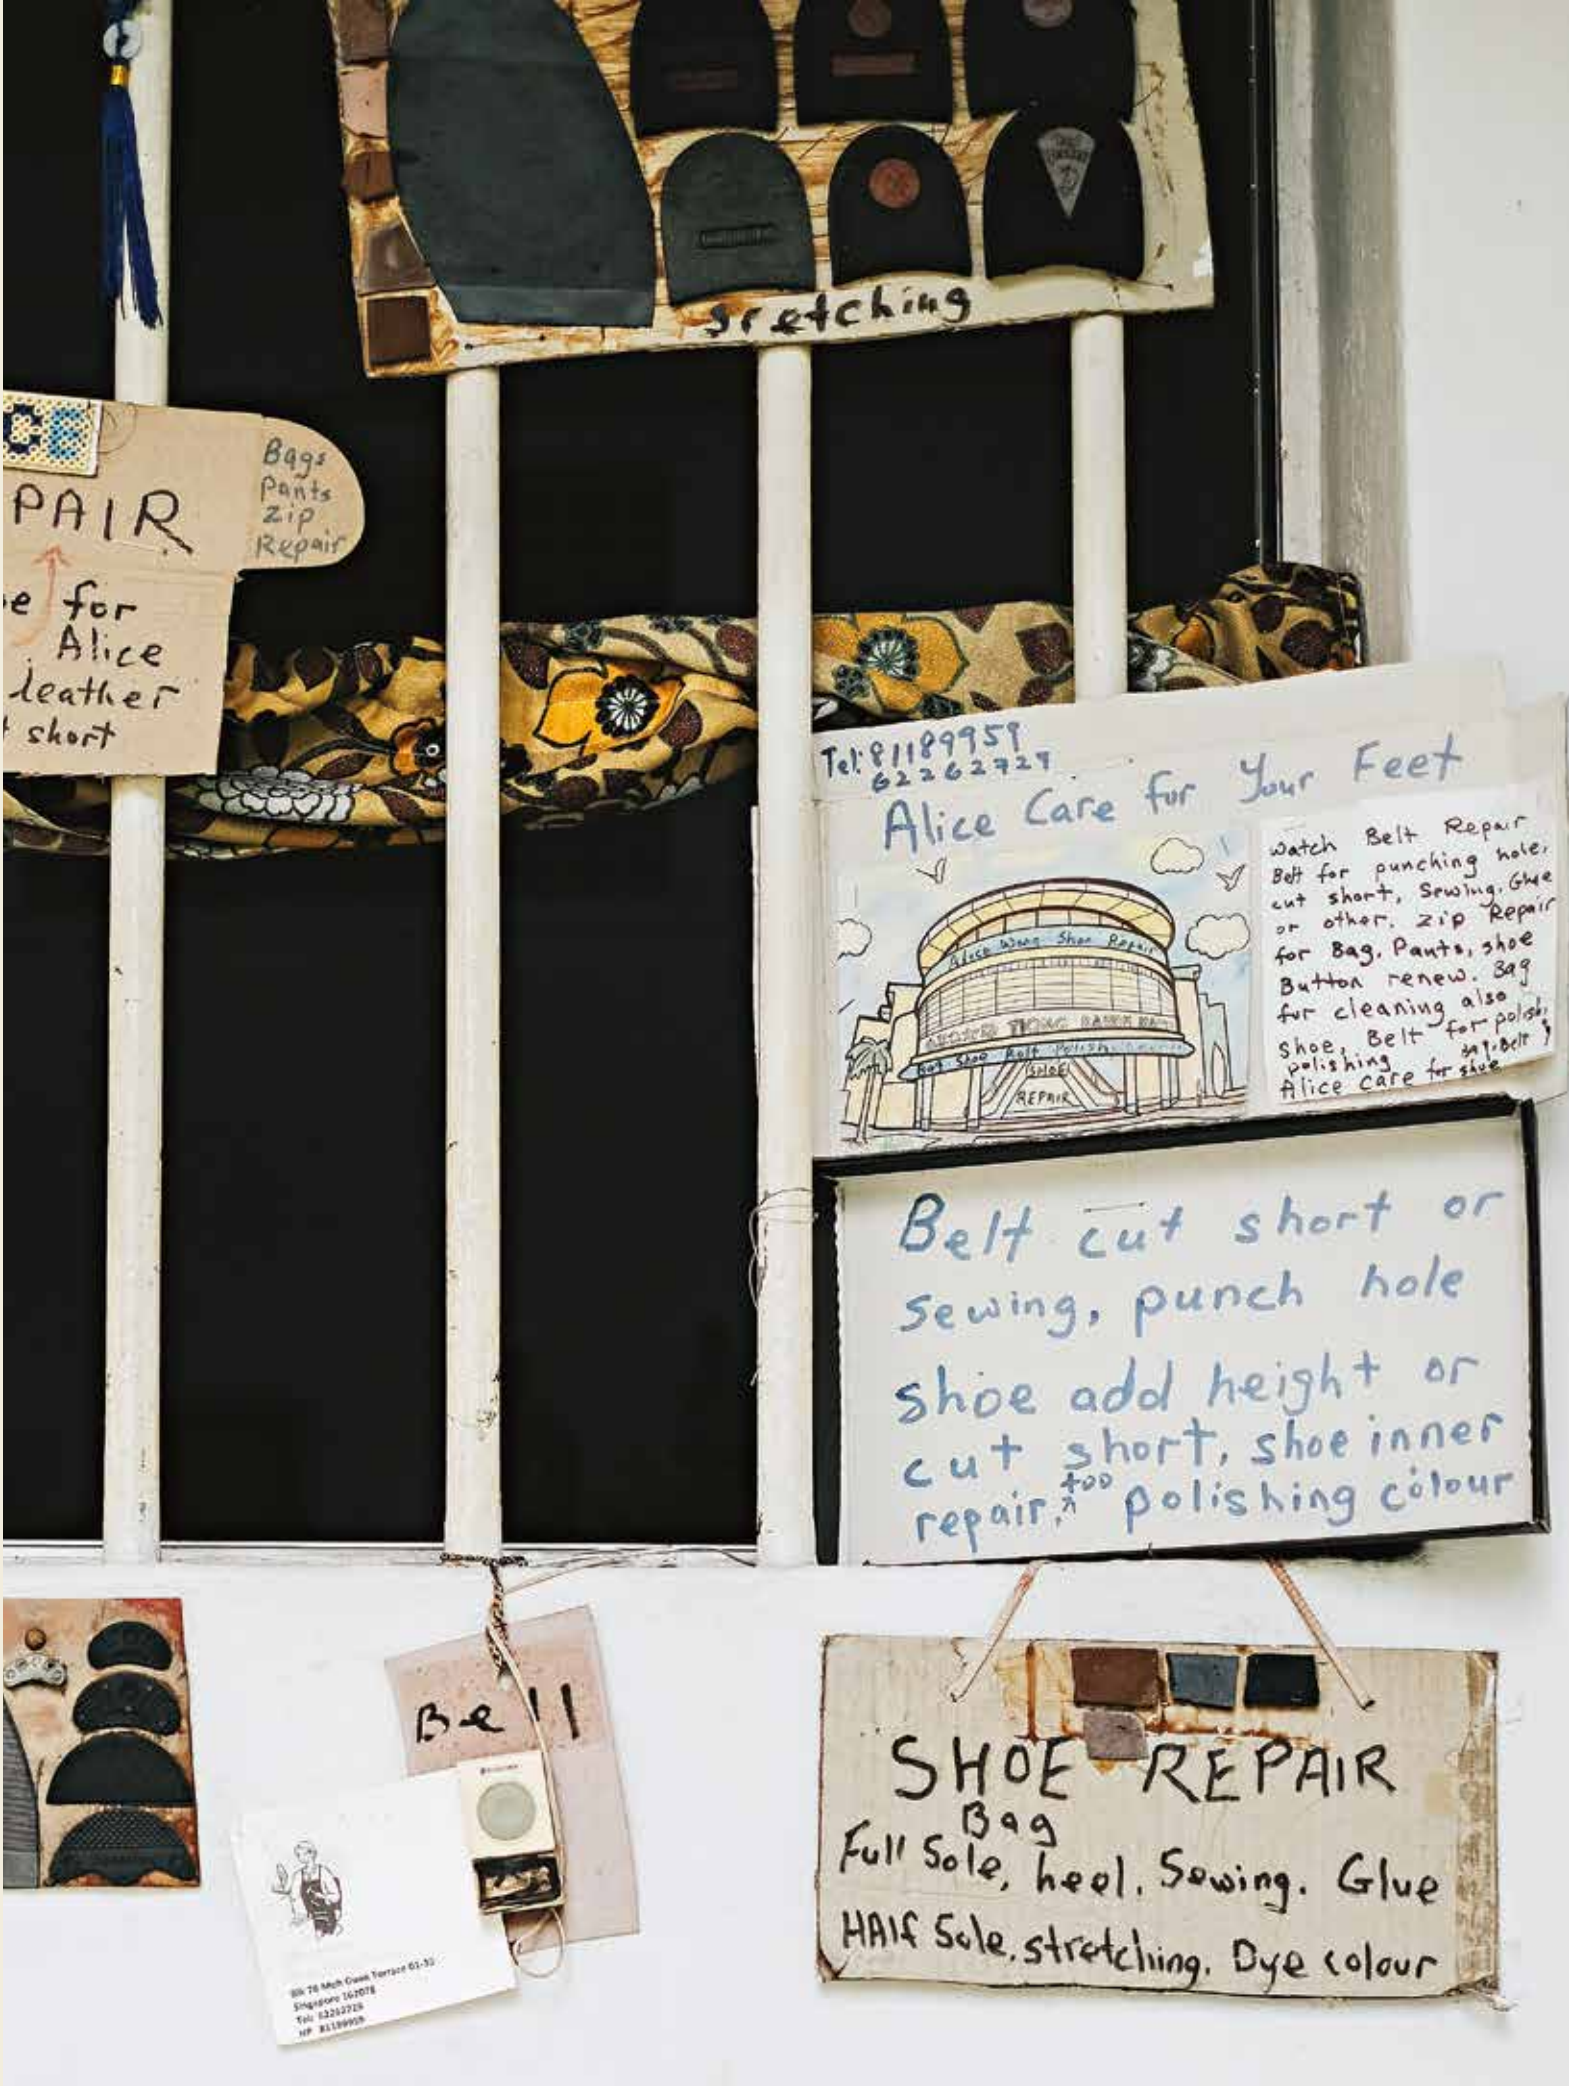 sretching
CE
PAIR
Bags
Pants
Zip
Repair
e for
Alice
leather
short
Tel: 81189959
62262729
Alice Care for Your Feet
Alice Wong Shoe Repair
Shoe Belt Polish
SHOE
REPAIR
Watch Belt Repair
Belt for punching hole,
cut short, Sewing. Glue
or other. Zip Repair
for Bag. Pants, shoe
Button renew. Bag
for cleaning also
Shoe, Belt for polish,
polishing bag. Belt
Alice care for shoe
Belt cut short or
sewing, punch hole
shoe add height or
cut short, shoe inner
repair, too polishing colour
Bell
Singapore 162078
Tel: 62262729
HP 81189959
SHOE REPAIR
Bag
Full Sole, heel. Sewing. Glue
HAlf Sole. stretching. Dye colour